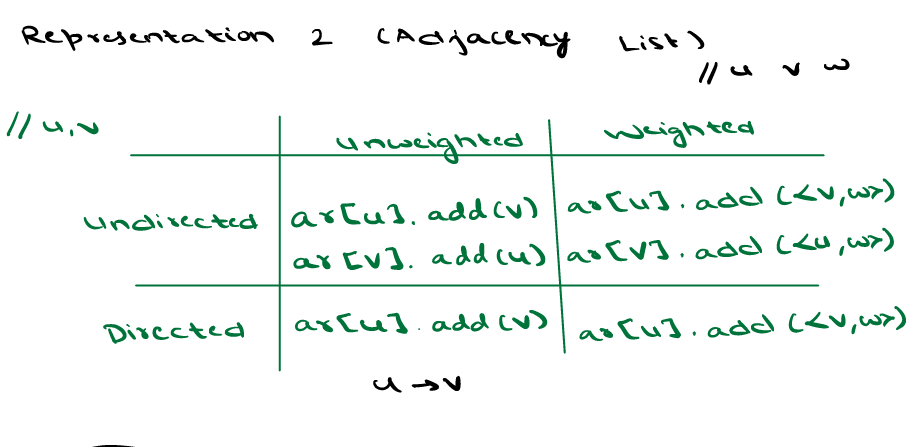 Representation 2 (Adjacency List)
// u v w
// u,v
Unweighted Weighted
Undirected ar[u].add(v) ar[u].add(<v,w>)
ar[v].add(u) ar[v].add(<u,w>)
Directed ar[u].add(v) ar[u].add(<v,w>)
u → v